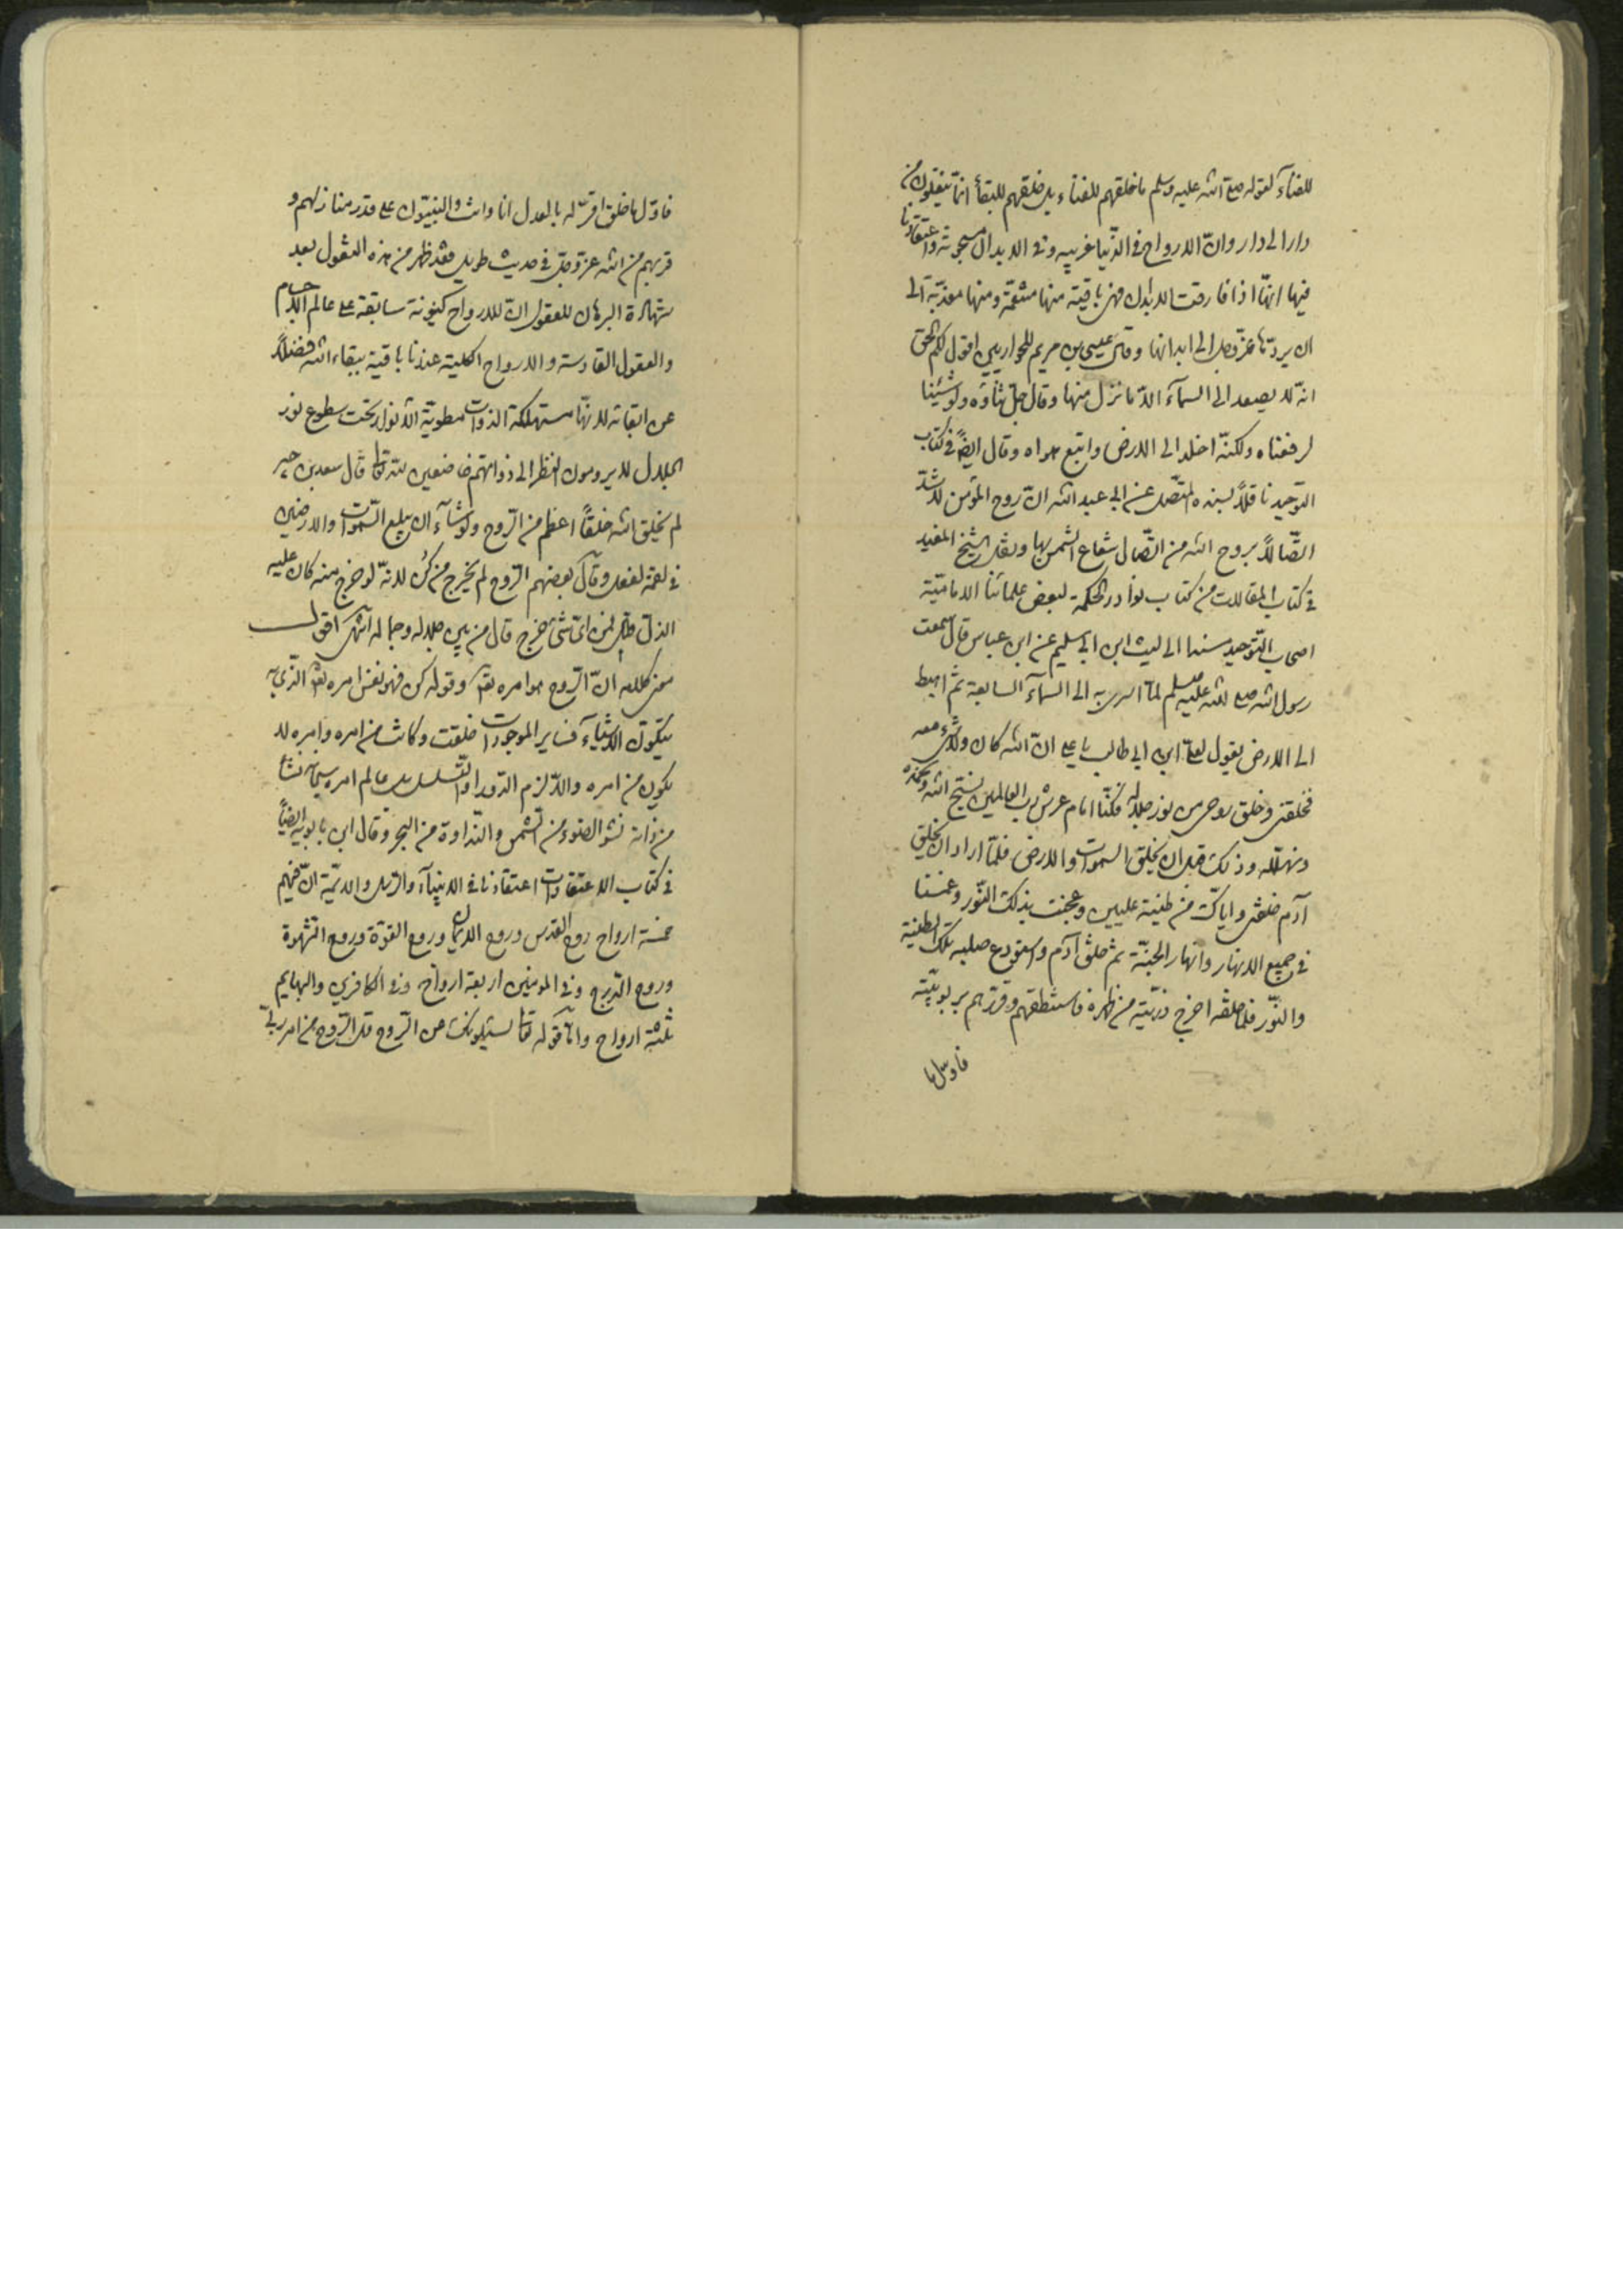 للفناء لقوله صلع الله عليه وسلم ما خلقهم للفناء بل خلقهم للبقاء انما تنقلون من
دار الى دار وان الارواح فى الدنيا غريبه وفى الابدان مسجونه واعتقادنا
فيها انها اذا فارقت الابدان فهى باقية منها منعّمة ومنها معذّبة الى
ان يردّها عزّ وجل الى ابدانها وقال عيسى بن مريم للحواريين اقول لكم الحق
انه لا يصعد الى السماء الّا ما نزل منها وقال جلّ ثناؤه ولو شئنا
لرفعناه ولكنّه اخلد الى الارض واتبع هواه وقال ايضًا فى كتاب
التوحيد ناقلًا بسنده المتّصل عن ابى عبد الله انّ روح المؤمن لاشدّ
اتّصالًا بروح الله من اتّصال شعاع الشمس بها ونقل الشيخ المفيد
فى كتاب المقالات من كتاب نوادر الحكمة لبعض علمائنا الاماميّة
اصحاب التوحيد مسندا الى ليث ابن ابى سليم عن ابن عباس قال سمعت
رسول الله صلع الله عليه وسلم لمّا اسرى به الى السماء السابعة ثم اهبط
الى الارض يقول لعلى ابن ابى طالب يا على انّ الله كان ولا شىء معه
فخلقنى وخلق روحين من نور جلاله فكنّا امام عرش رب العالمين نسبّح الله ونحمده
ونهلله وذلك قبل ان يخلق السموات والارض فلمّا اراد ان يخلق
آدم خلقنى واياك من طينة عليين وعجنت بذلك النّور وغمسنا
فى جميع الانهار وانهار الجنّة ثم خلق آدم واستودع صلبه تلك الطينة
والنّور فلما خلقه اخرج ذريّته من ظهره فاستنطقهم وقررهم بربوبيّته
فاوّل ما
فاوّل ما خلق اقرّ له بالعدل انا وانت والنبيّون على قدر منازلهم و
قربهم من الله عزّ وجلّ فى حديث طويل فقد ظهر من هذه النقول بعد
شهادة البرهان للعقول انّ للارواح كينونة سابقة على عالم الاجسام
والعقول القادسة والارواح الكلية عندنا باقية ببقاء الله فضلًا
عن ابقائه لانّها مستهلكة الذوات مطويّة الانوار تحت سطوع نور
الجلال لا يرومون النظر الى ذواتهم خاضعين لله تعالى قال سعد بن جبير
لم يخلق الله خلقًا اعظم من الروح ولو شاء ان يبلع السموات والارضين
فى لقمة لفعل وقال بعضهم الروح لم يخرج من كُن لانّه لو خرج من كان عليه
الذلّ قلت فمن اىّ شىء خرج قال من بين جلاله وجماله انتهى اقول
معنى كلامه انّ الروح هو امره تعالى وقوله كن فهو نفس امره تعالى الذى به
يتكوّن الاشياء فساير الموجودات خلقت وكانت من امره وامره لا
يكون من امره والّا لزم الدّور او التّسلسل بل عالم امره سبحانه نشأ
من ذاته نشو الضوء من الشمس والنّداوة من البحر وقال ابن بابويه ايضًا
فى كتاب الاعتقادات اعتقادنا فى الانبيآء والرّسل والائمّة انّ فيهم
خمسة ارواح روح القدس وروح الايمان وروح القوّة وروح الشهوة
وروح المدرج وفى المومنين اربعة ارواح وفى الكافرين والبهايم
ثلثة ارواح وامّا قوله تعالى يسئلونك عن الرّوح قل الرّوح من امر ربّى